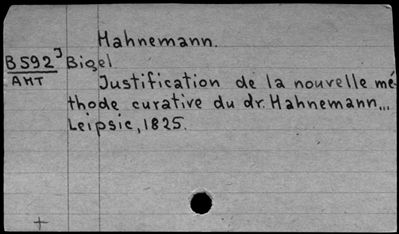 Hahnemann.
B592J Bigel
AHT Justification de la nouvelle mé-
thode curative du dr. Hahnemann...
Leipsic, 1825.
+